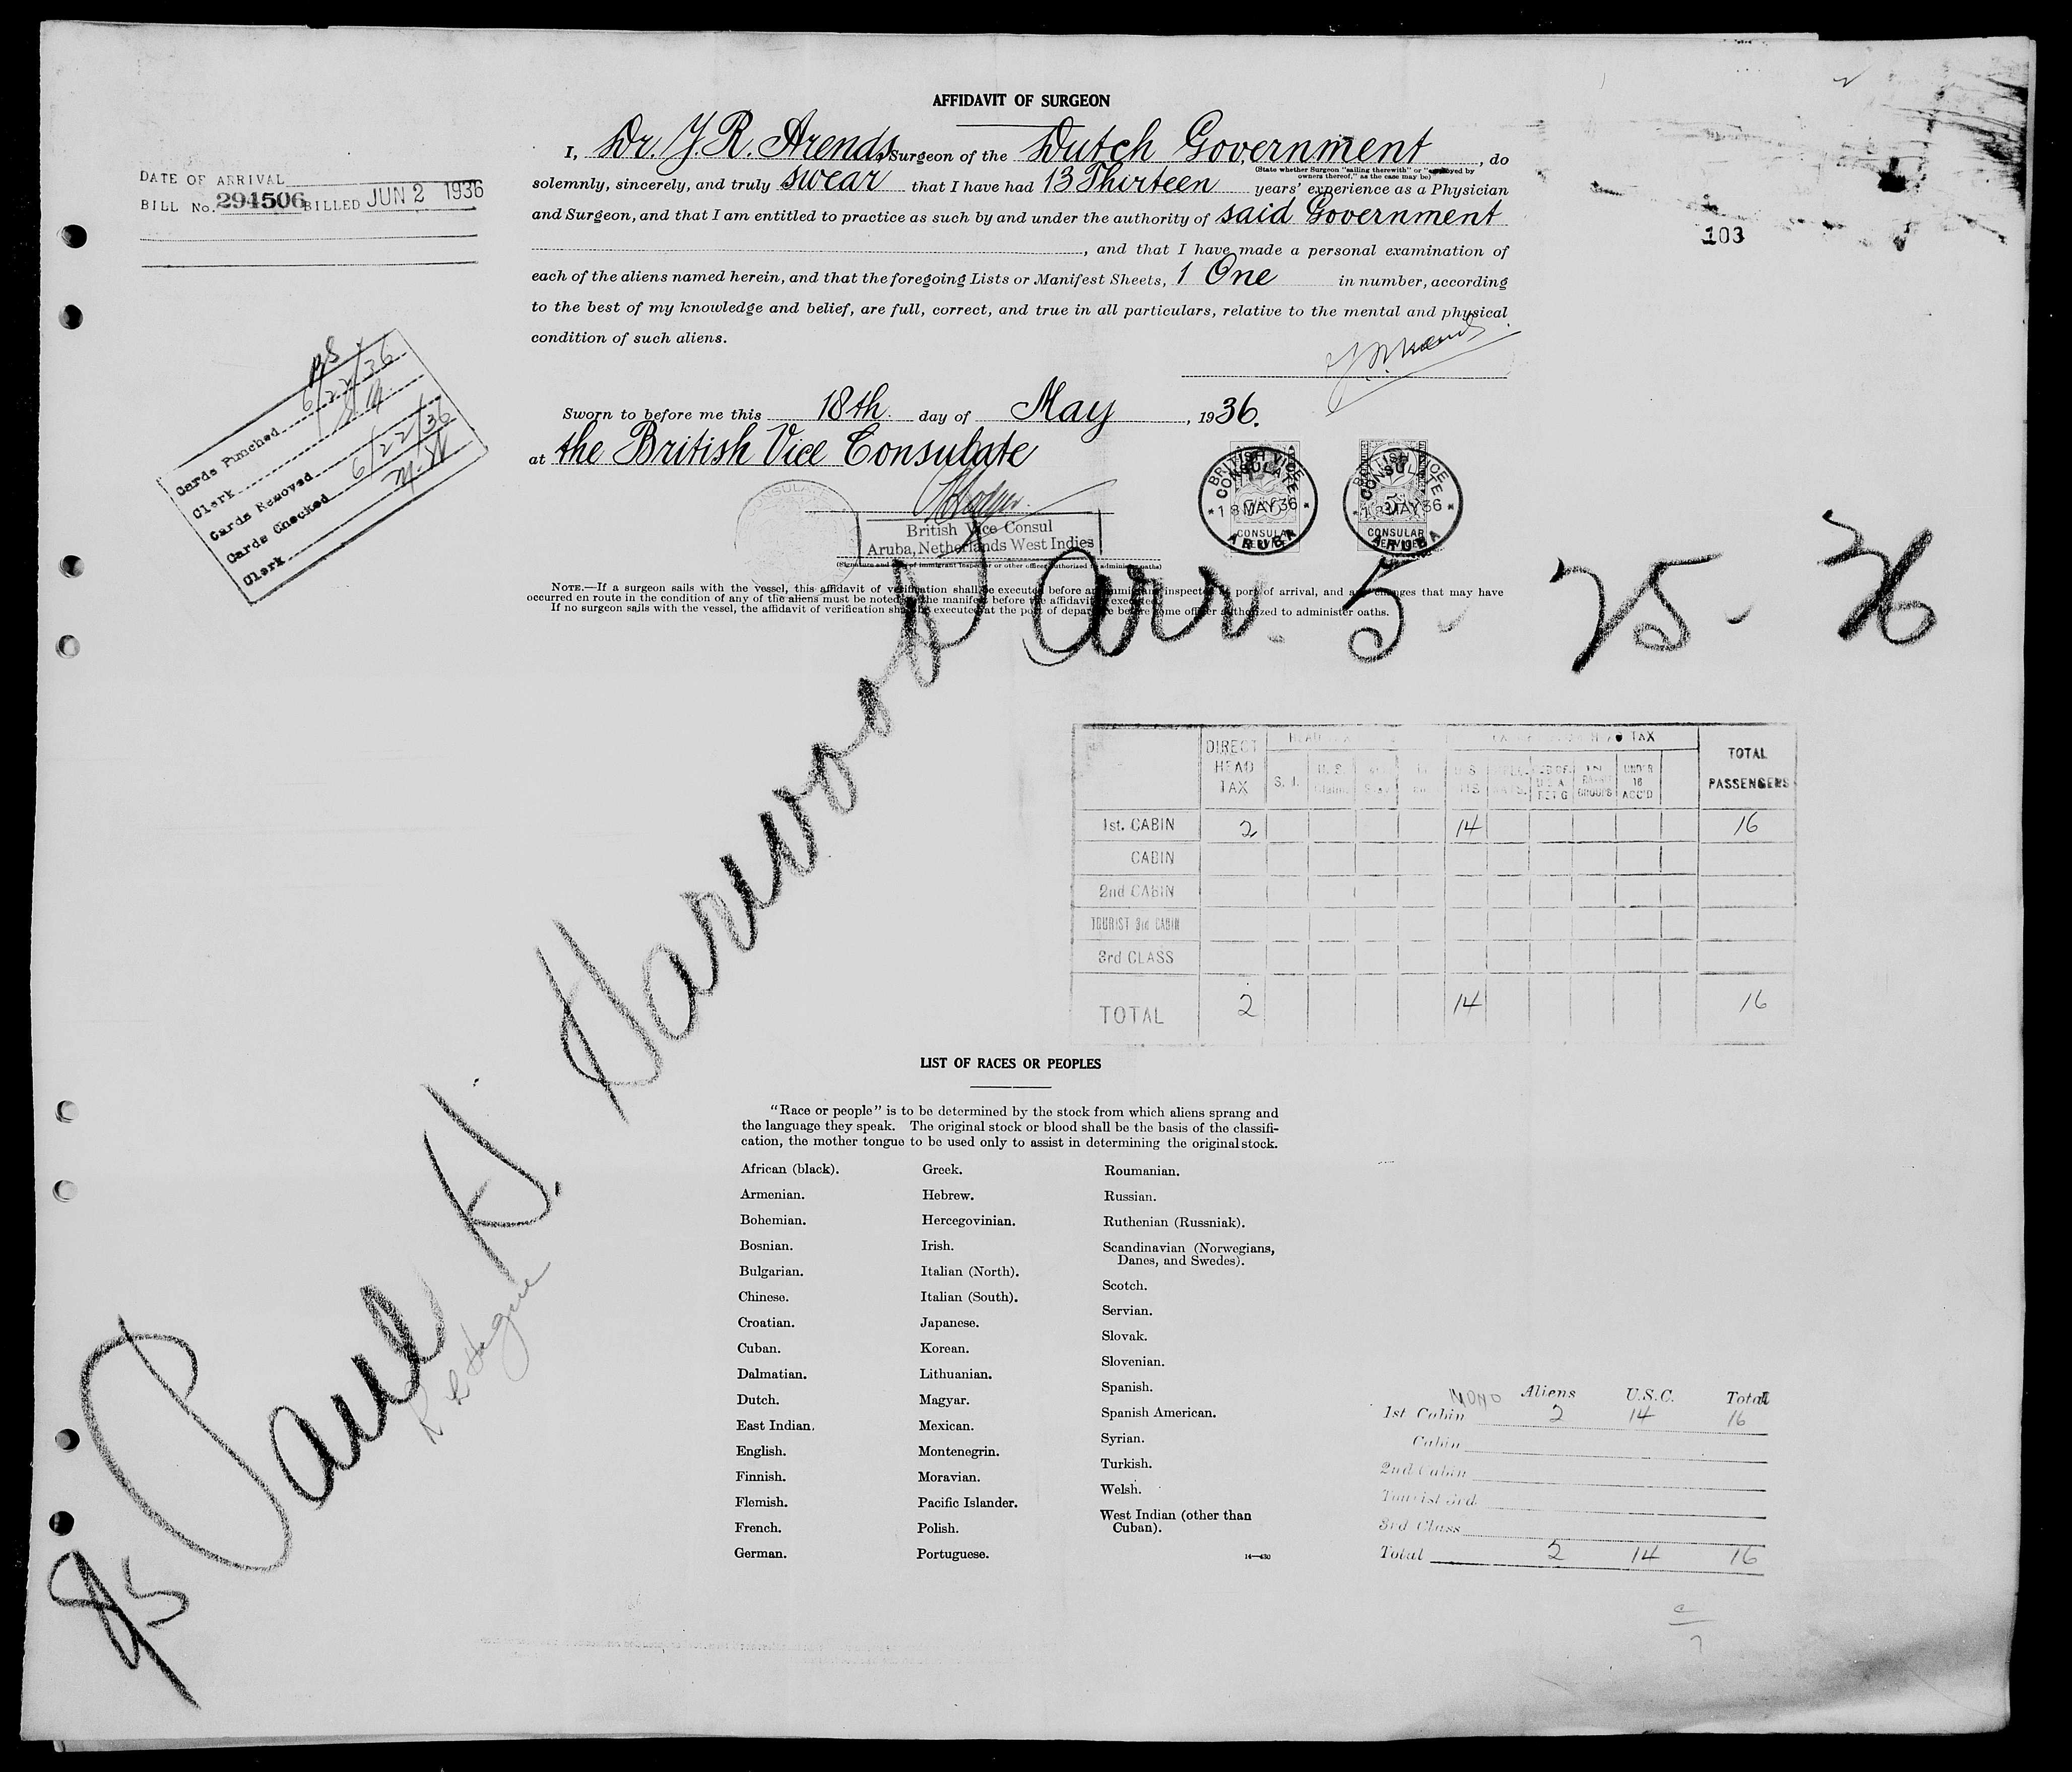 AFFIDAVIT OF SURGEON
I, Dr. J. R. Arends, Surgeon of the Dutch Government, do
(State whether Surgeon "sailing therewith" or "employed by owners thereof," as the case may be)
solemnly, sincerely, and truly swear that I have had 13 Thirteen years' experience as a Physician
and Surgeon, and that I am entitled to practice as such by and under the authority of said Government
, and that I have made a personal examination of
each of the aliens named herein, and that the foregoing Lists or Manifest Sheets, 1 One in number, according
to the best of my knowledge and belief, are full, correct, and true in all particulars, relative to the mental and physical
condition of such aliens.
DATE OF ARRIVAL
BILL No. 294506 BILLED JUN 2 1936
103
Cards Punched 6/22/36
Clerk
Cards Removed
Cards Checked 6/22/36
Clerk
Sworn to before me this 18th day of May, 1936.
at the British Vice Consulate
British Vice Consul
Aruba, Netherlands West Indies
BRITISH VICE CONSULATE
* 18 MAY 36 *
ARUBA
CONSULAR SERVICE
BRITISH VICE CONSULATE
* 18 MAY 36 *
ARUBA
CONSULAR SERVICE
(Signature and title of immigrant inspector or other officer authorized to administer oaths)
NOTE.—If a surgeon sails with the vessel, this affidavit of verification shall be executed before an immigrant inspector at port of arrival, and any changes that may have
occurred en route in the condition of any of the aliens must be noted on the manifest before the affidavit is executed.
If no surgeon sails with the vessel, the affidavit of verification shall be executed at the port of departure before some officer authorized to administer oaths.
S/S Paul H. Harwood Arr. 5 - 25 - 36
DIRECT HEAD TAX
HEAD TAX
TOTAL PASSENGERS
S. I.
UNDER 16 ACC'D
1st. CABIN 2 14 16
CABIN
2nd CABIN
TOURIST 3rd CABIN
3rd CLASS
TOTAL 2 14 16
LIST OF RACES OR PEOPLES
"Race or people" is to be determined by the stock from which aliens sprang and
the language they speak. The original stock or blood shall be the basis of the classifi-
cation, the mother tongue to be used only to assist in determining the original stock.
African (black).
Armenian.
Bohemian.
Bosnian.
Bulgarian.
Chinese.
Croatian.
Cuban.
Dalmatian.
Dutch.
East Indian.
English.
Finnish.
Flemish.
French.
German.
Greek.
Hebrew.
Hercegovinian.
Irish.
Italian (North).
Italian (South).
Japanese.
Korean.
Lithuanian.
Magyar.
Mexican.
Montenegrin.
Moravian.
Pacific Islander.
Polish.
Portuguese.
Roumanian.
Russian.
Ruthenian (Russniak).
Scandinavian (Norwegians,
Danes, and Swedes).
Scotch.
Servian.
Slovak.
Slovenian.
Spanish.
Spanish American.
Syrian.
Turkish.
Welsh.
West Indian (other than
Cuban).
14—430
Aliens U.S.C. Total
1st Cabin 2 14 16
Cabin
2nd Cabin
Tourist 3rd
3rd Class
Total 2 14 16